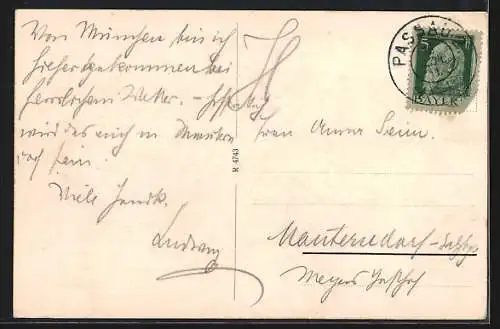 Von München bin ich
hierhergekommen bei
herrlichem Wetter. - Hoffentlich
wird das auch in
doch sein.
Viele
Ludwig
R. 4743
PASSAU
5
BAYERN
Frau Anna
Mauterndorf -
Meyers Gasthof